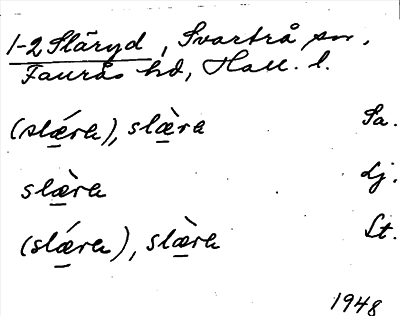 1-2 Släryd, Svartrå sn.
Faurås hd, Hall. l.
(slǽra), slæ̀ra Sa.
slæ̀ra Lj.
(slǽra), slæ̀ra St.
1948